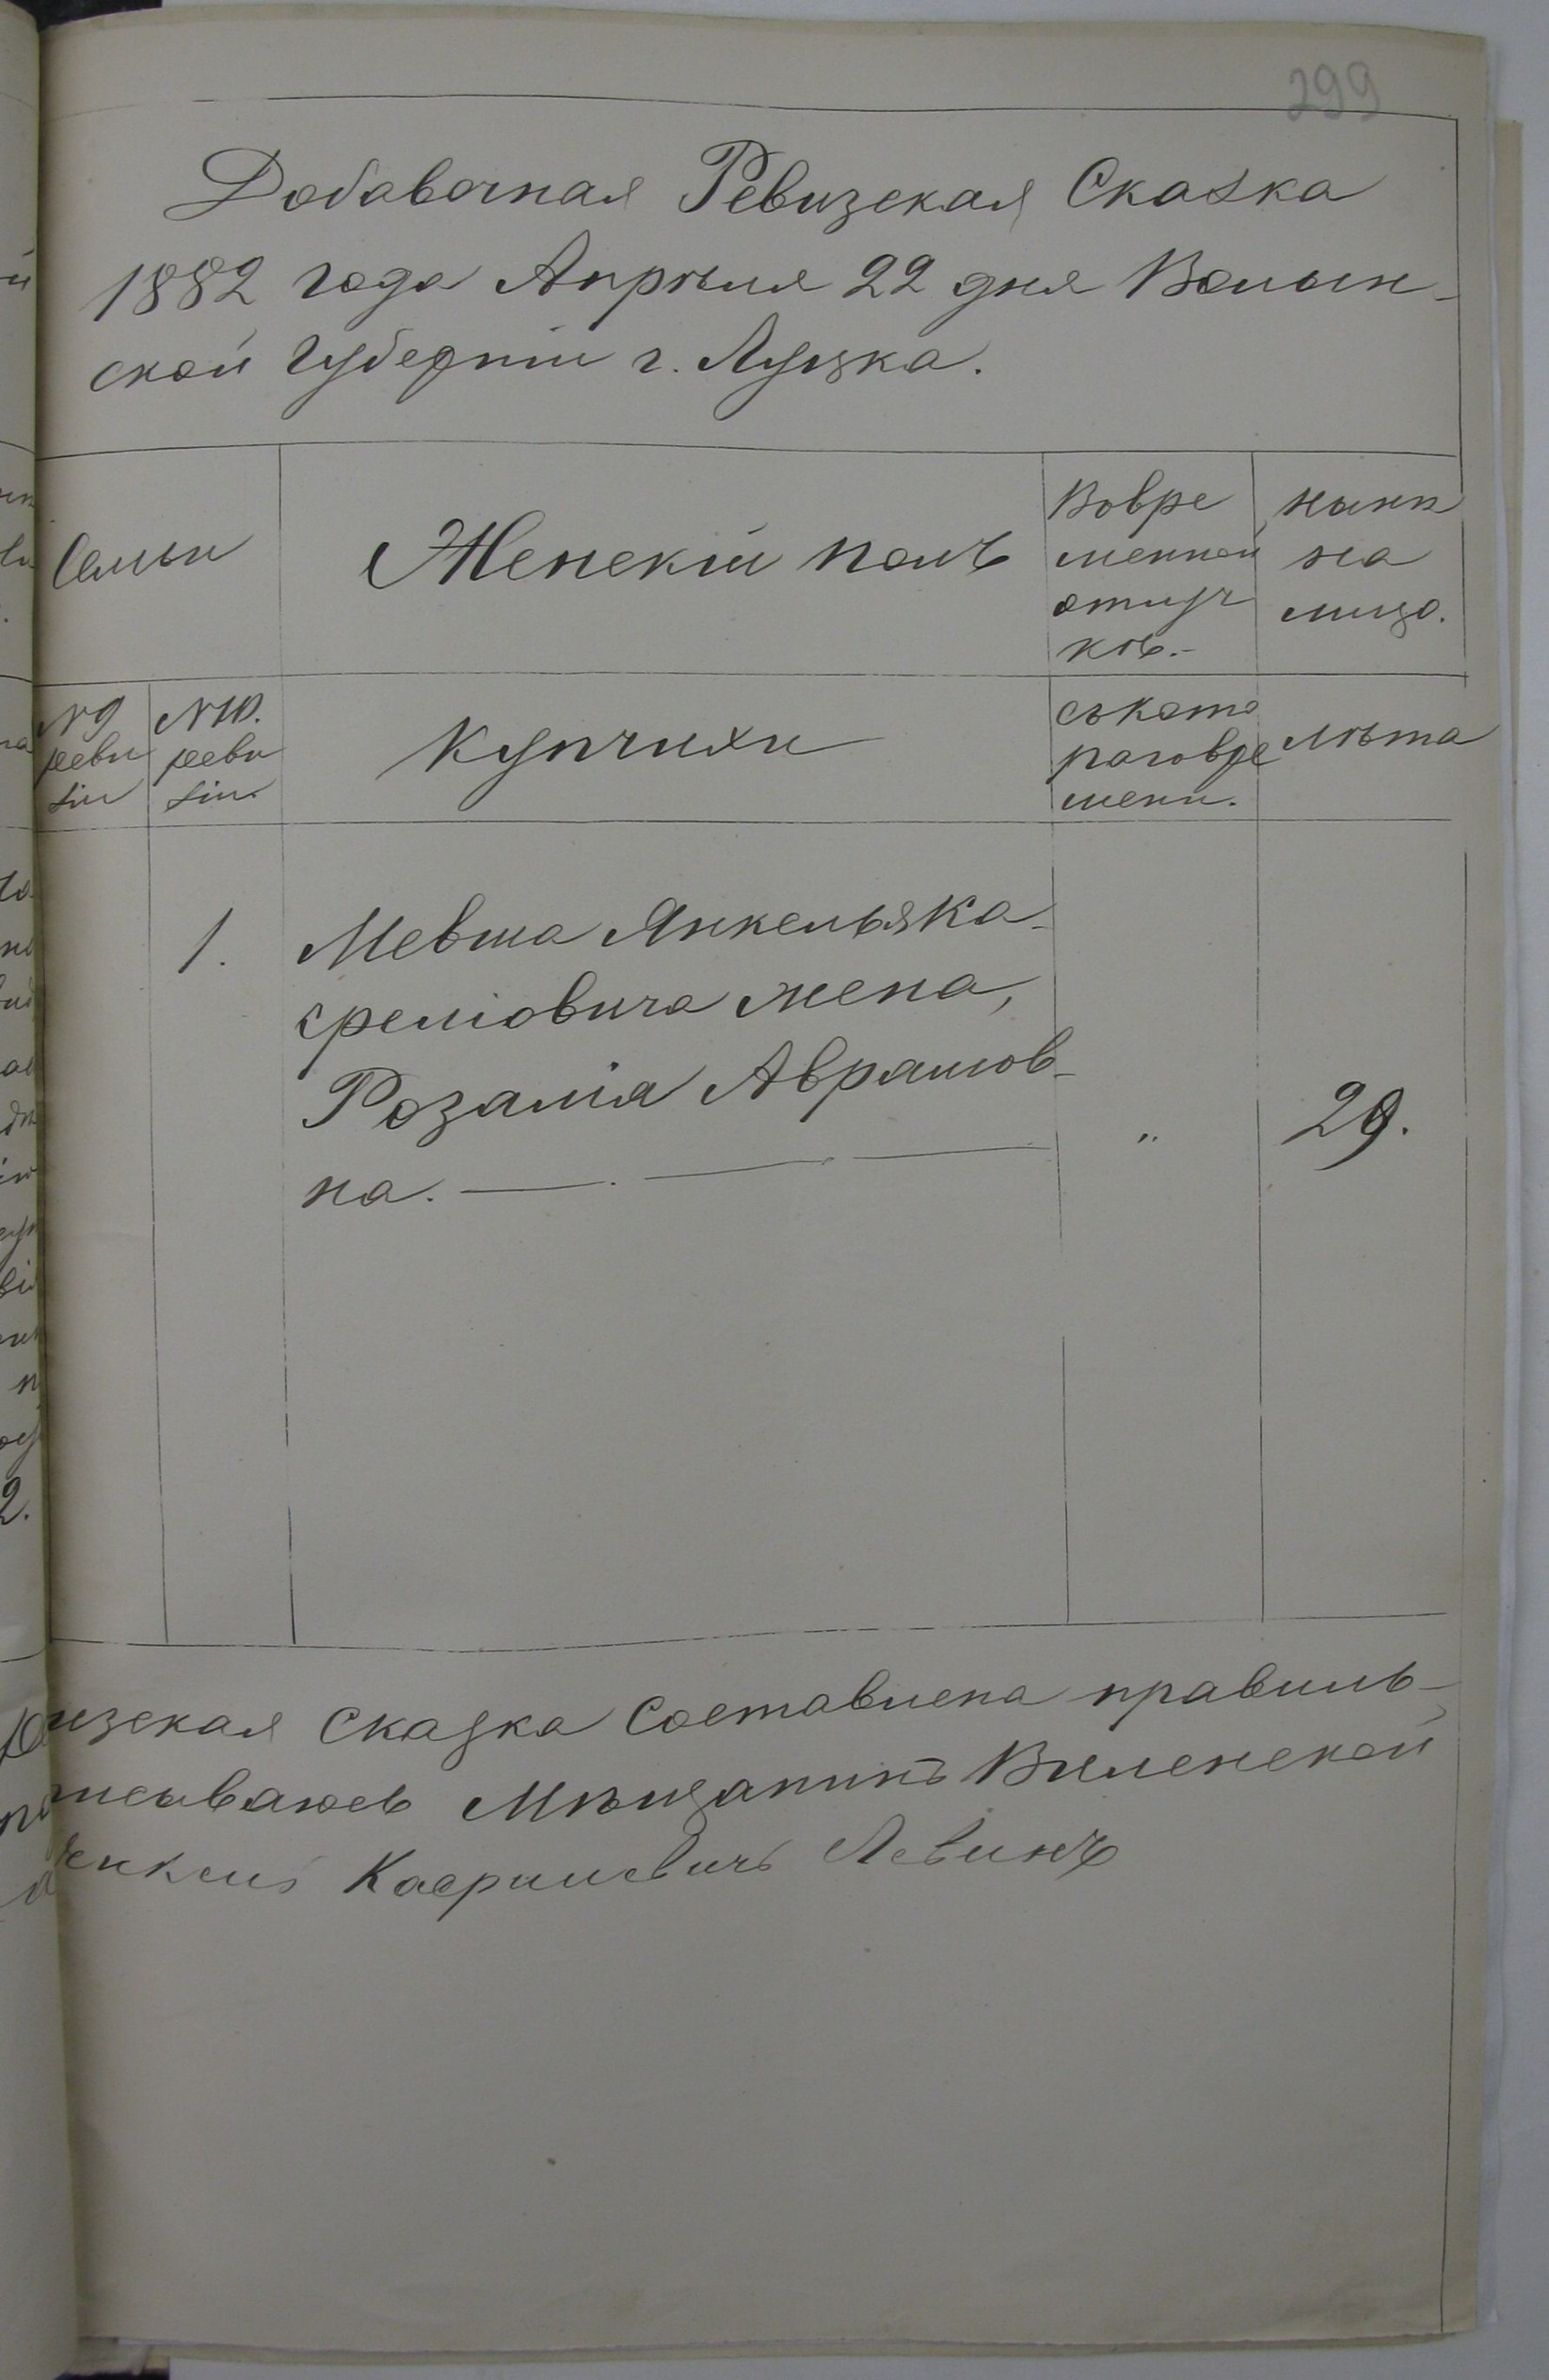 299
Добавочная Ревизская Сказка
1882 года Апрѣля 22 дня Волын-
ской Губерніи г. Луцка.
Семьи
Женскій полъ
Вовре
менной
отлуч
кѣ.-
нынѣ
на
лицо.
№ 9
реви
зіи
№ 10.
реви
зіи.
Купчихи
съкото
раговре
мени.
лѣта
1.
Мевша Янкельзяка-
среліовича жена,
Розалія Аврамов-
на.
„
29.
изская Сказка Составлена правиль-
писываюсь Мѣщанинъ Виленской
Касриловичъ Левинъ